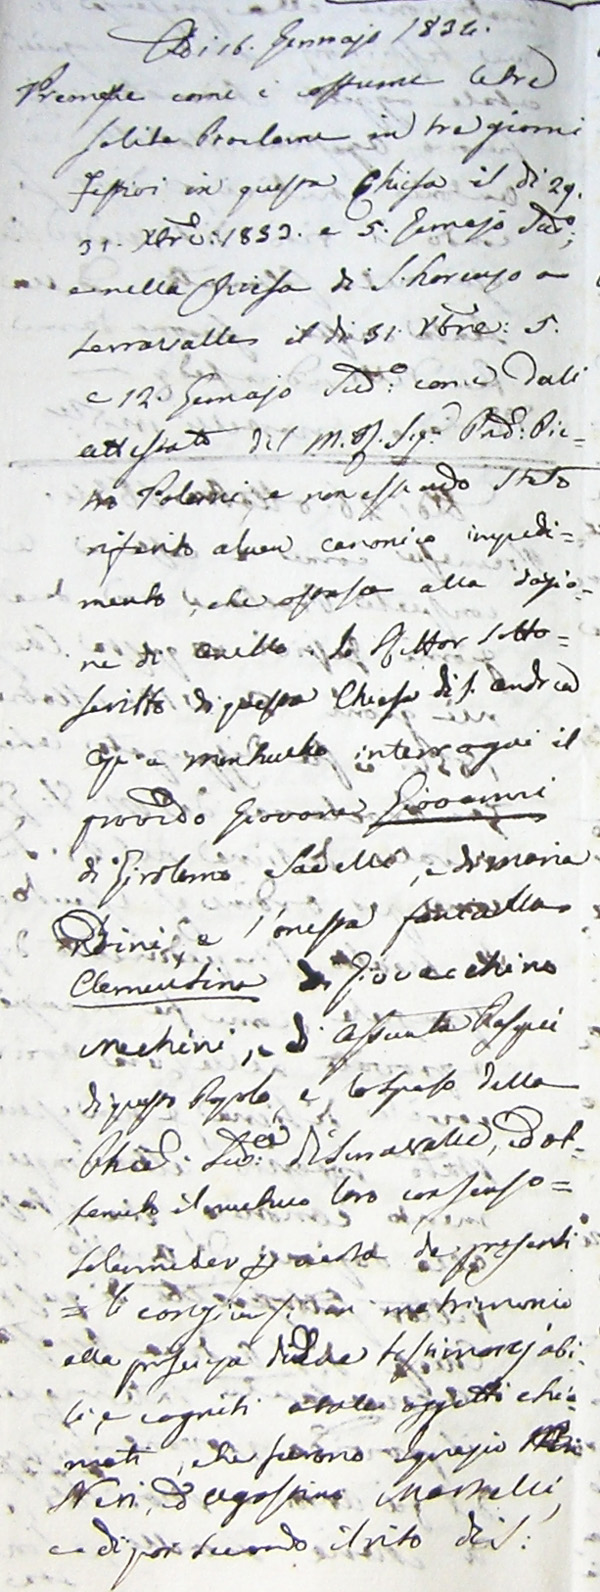 Adi 16. Gennajo 1834.
Premesse come è costume le tre
solite Proclame in tre giorni
festivi in questa Chiesa il dì 29.
31. Xbre: 1833. e 5. Gennajo Sud.o;
e nella Chiesa di S. Lorenzo a
Serravalle il dì 31. Xbre: 5.
e 12. Gennajo Sud.o: come dall'
attestato del M. R. Sig.r Pie=
tro e non essendo stato
riferito alcun canonico impedi=
mento, che ostasse alla dazio=
ne di anello. Io Rettor sotto=
scritto di questa Chiesa di S. Andrea
interrogai il
provido Giovane Giovanni
di Girolamo Sadelli, e di Maria
e l'onesta fanciulla
Clementina di Giovacchino
Mechini, e di Assunta
di questo Popolo, e lo sposo della
Chiesa Sud.a di Serravalle, ed ot=
tenuto il mutuo loro consenso=
p. de presenti
= li congiunsi in matrimonio
alla presenza di due testimonj abi=
li, e cogniti a tale oggetto chia=
mati, che furono Ignazio
Neri, ed Agostino Martelli,
e di poi secondo il rito di S: